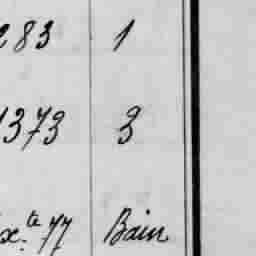 283 1
1373 3
x.te 77 Bain